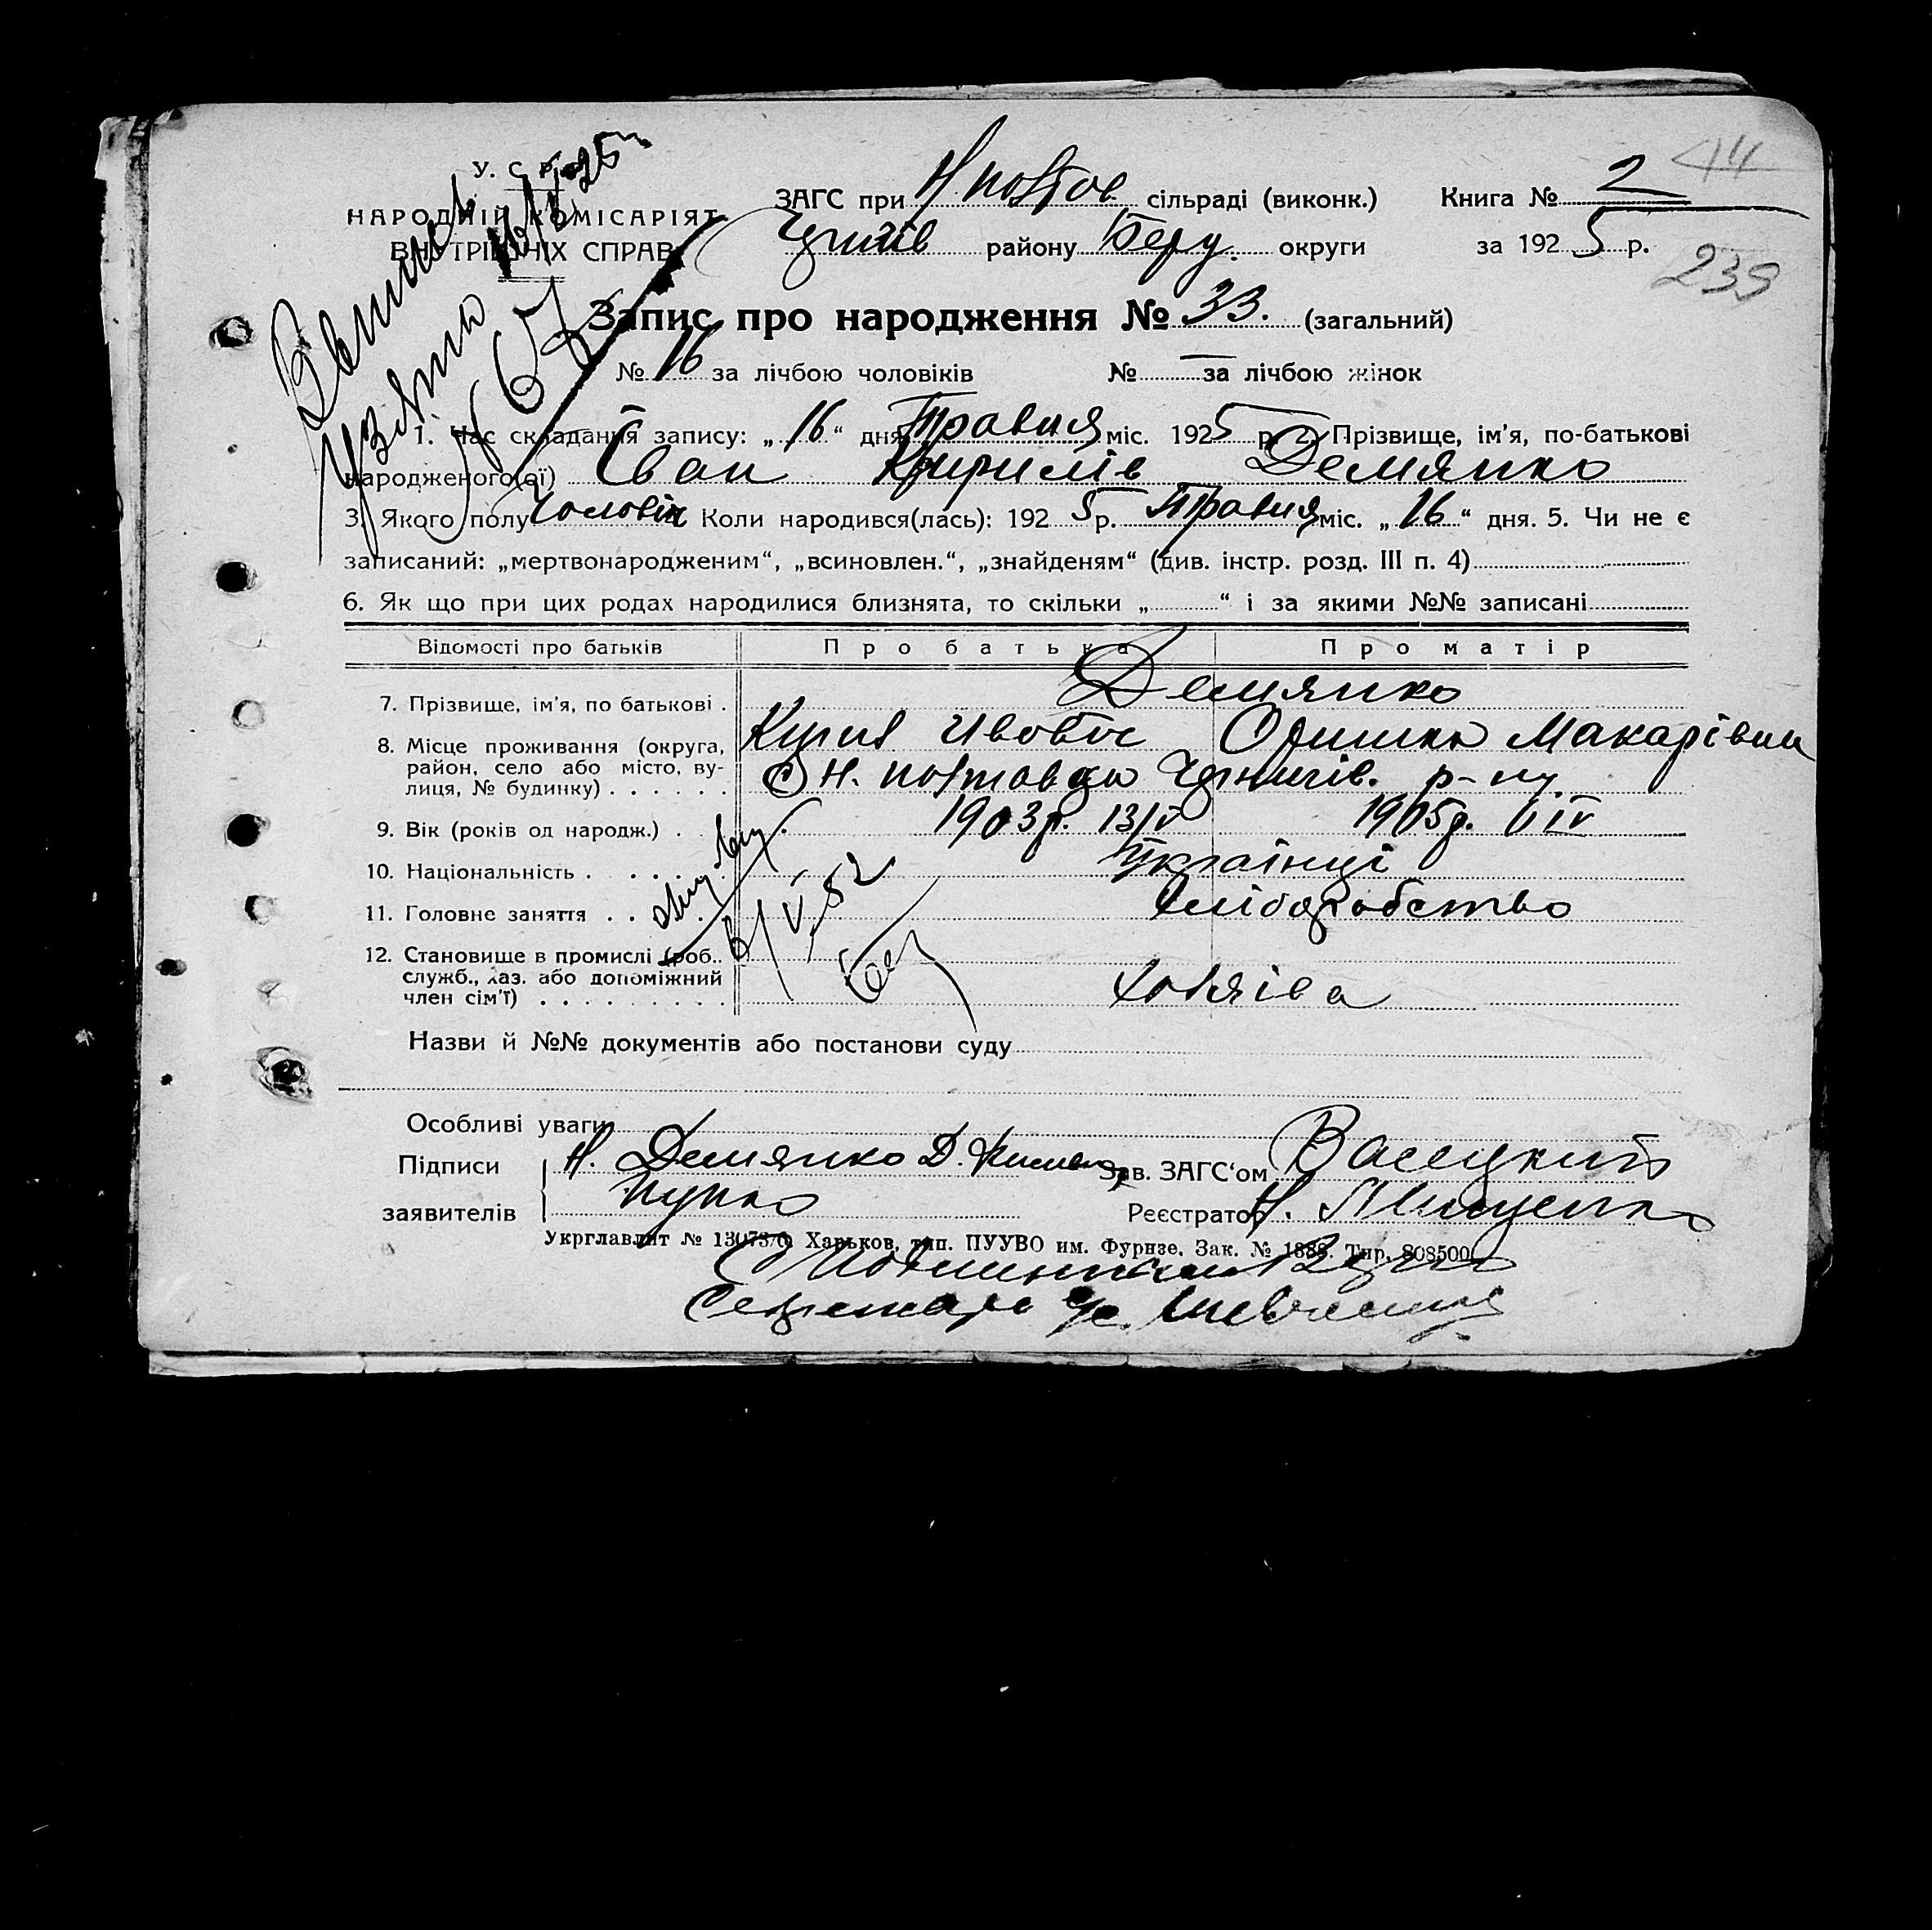 У. С. Р. Р.
НАРОДНІЙ КОМІСАРІЯТ
ВНУТРІШНІХ СПРАВ
ЗАГС при Н полтов. сільраді (виконк.) Книга № 2
району Беру. округи за 1925 р.
44
239
Запис про народження № 33. (загальний)
№ 16 за лічбою чоловіків № — за лічбою жінок
1. Час складання запису: „16“ дня Травня міс. 1925 р. 2. Прізвище, ім’я, по-батькові
народженого(ої) Іван Кирилів Демянко
3. Якого полу Чоловік Коли народився(лась): 1925 р. Травня міс. „16“ дня. 5. Чи не є
записаний: „мертвонародженим“, „всиновлен.“, „знайденям“ (див. інстр. розд. III п. 4)
6. Як що при цих родах народилися близнята, то скільки „ “ і за якими №№ записані
Відомості про батьків Про батька Про матір
7. Прізвище, ім’я, по батькові . Демянко
8. Місце проживання (округа, Оришка Макарівна
район, село або місто, ву-
лиця, № будинку) . . . . . . С Н. полтавка р-ну
9. Вік (років од народж.) . 1903р. 13/V 1905р.
10. Національність . . . . Українці
11. Головне заняття . . Хліборобство
6/V 52
12. Становище в промислі (роб..
служб., хаз. або допоміжний
член сім’ї) . . . . . . . . . Хозяіва
Назви й №№ документів або постанови суду
Особливі уваги
Підписи Н. Демянко Д. Зав. ЗАГС‘ом Васецкий
заявителів Реєстратор
Укрглавліт № 13073/0. Харьков, тип. ПУУВО им. Фурнзе. Зак. № 1888. Тир. 808500
Секретарь